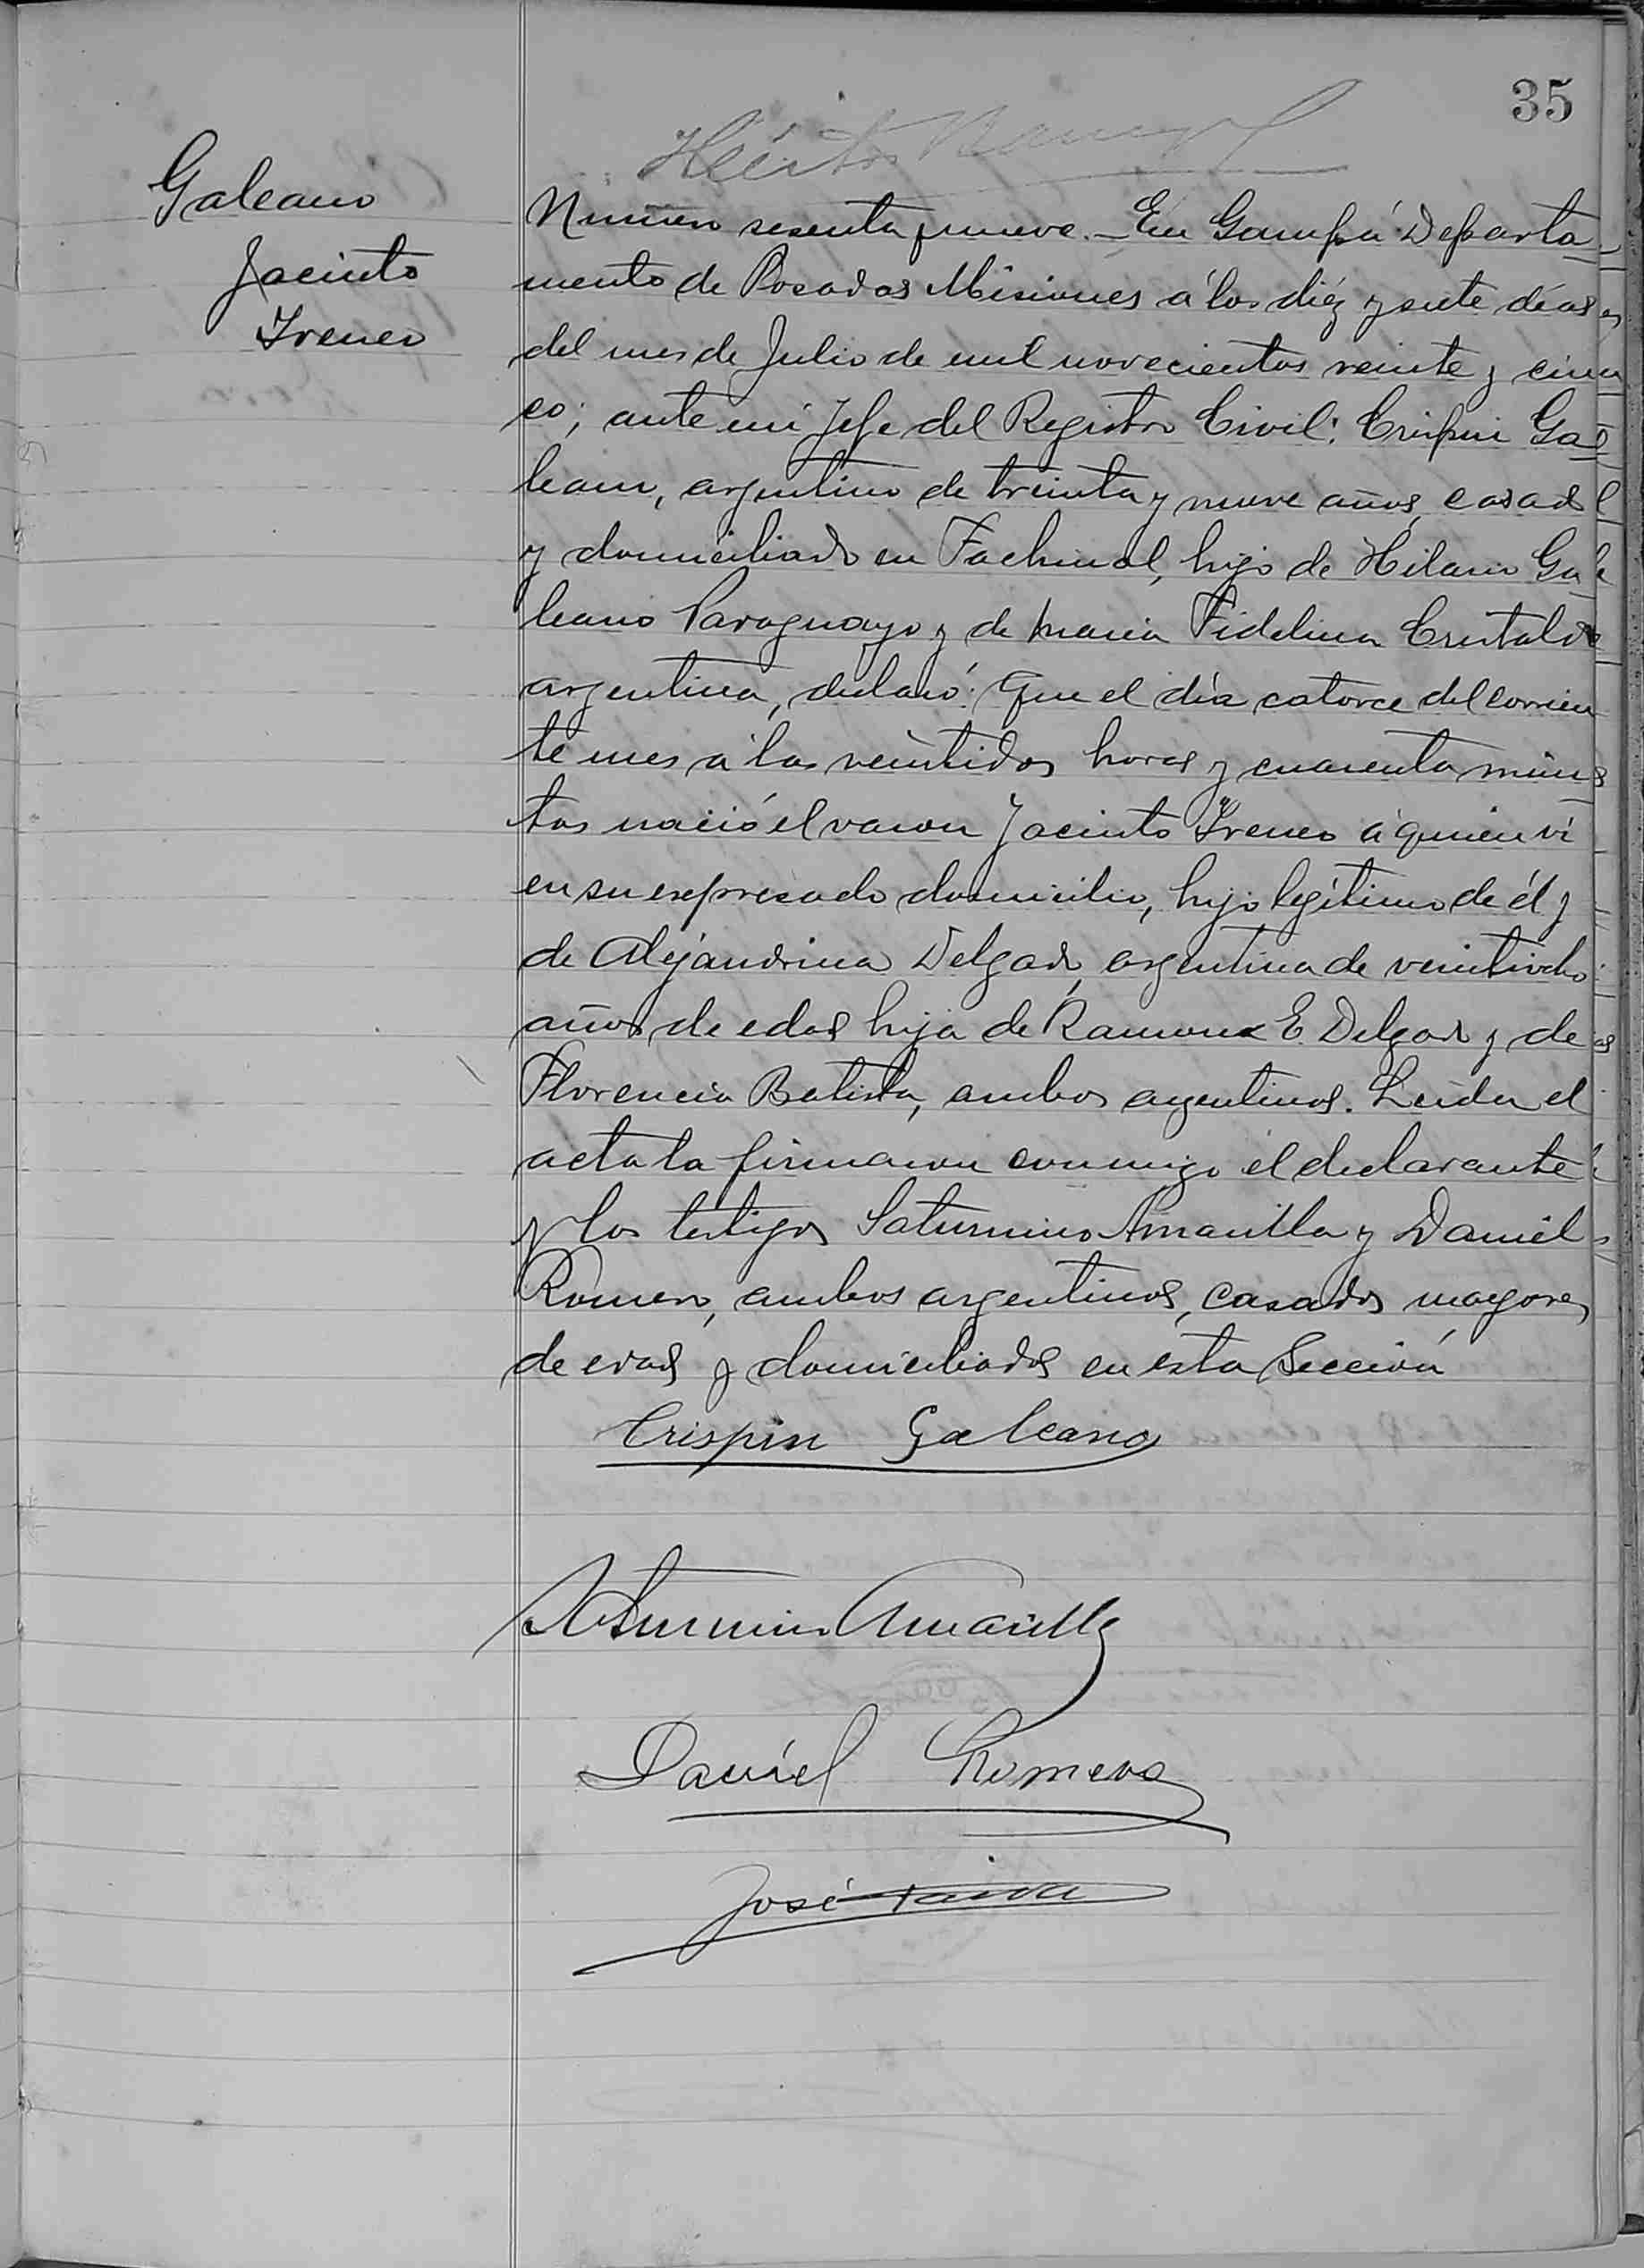 35
Héctor
Galeano
Jacinto
Ireneo
Número sesenta y nueve. – En Garupá Departa-
mento de Posadas Misiones á los diéz y siete días
del mes de Julio de mil novecientos veinte y cin-
co; ante mi Jefe del Registro Civil: Crispin Ga-
leano, argentino de treinta y nueve años, casado
y domiciliado en Fachinal, hijo de Hilario Ga-
leano Paraguayo y de Maria Fidelina Cristaldo
argentina, declaró: Que el día catorce del corrien-
te mes á las veintidos horas y cuarenta minu-
tos nació el varon Jacinto Ireneo á quien ví
en su expresado domicilio, hijo legítimo de él y
de Alejandrina Delgado, argentina de veintiocho
años de edad hija de Ramona E. Delgado y de
Florencio Batista, ambos argentinos. Leida el
acta la firmaron conmigo el declarante
y los testigos Saturnino Amarilla y Daniel
Romero, ambos argentinos, casados mayores
de edad y domiciliados en ésta Sección
Crispin Galeano
Saturnino Amarilla
Daniel Romero
José Paiva